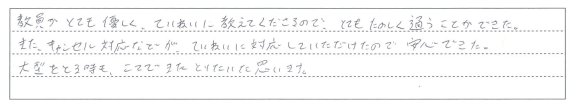 教員がとても優しく、ていねいに教えてくださるので、とてもたのしく通うことができた。
また、キャンセル対応などが、ていねいに対応していただけたので安心できた。
大型をとる時も、ここでまたとりたいと思います。